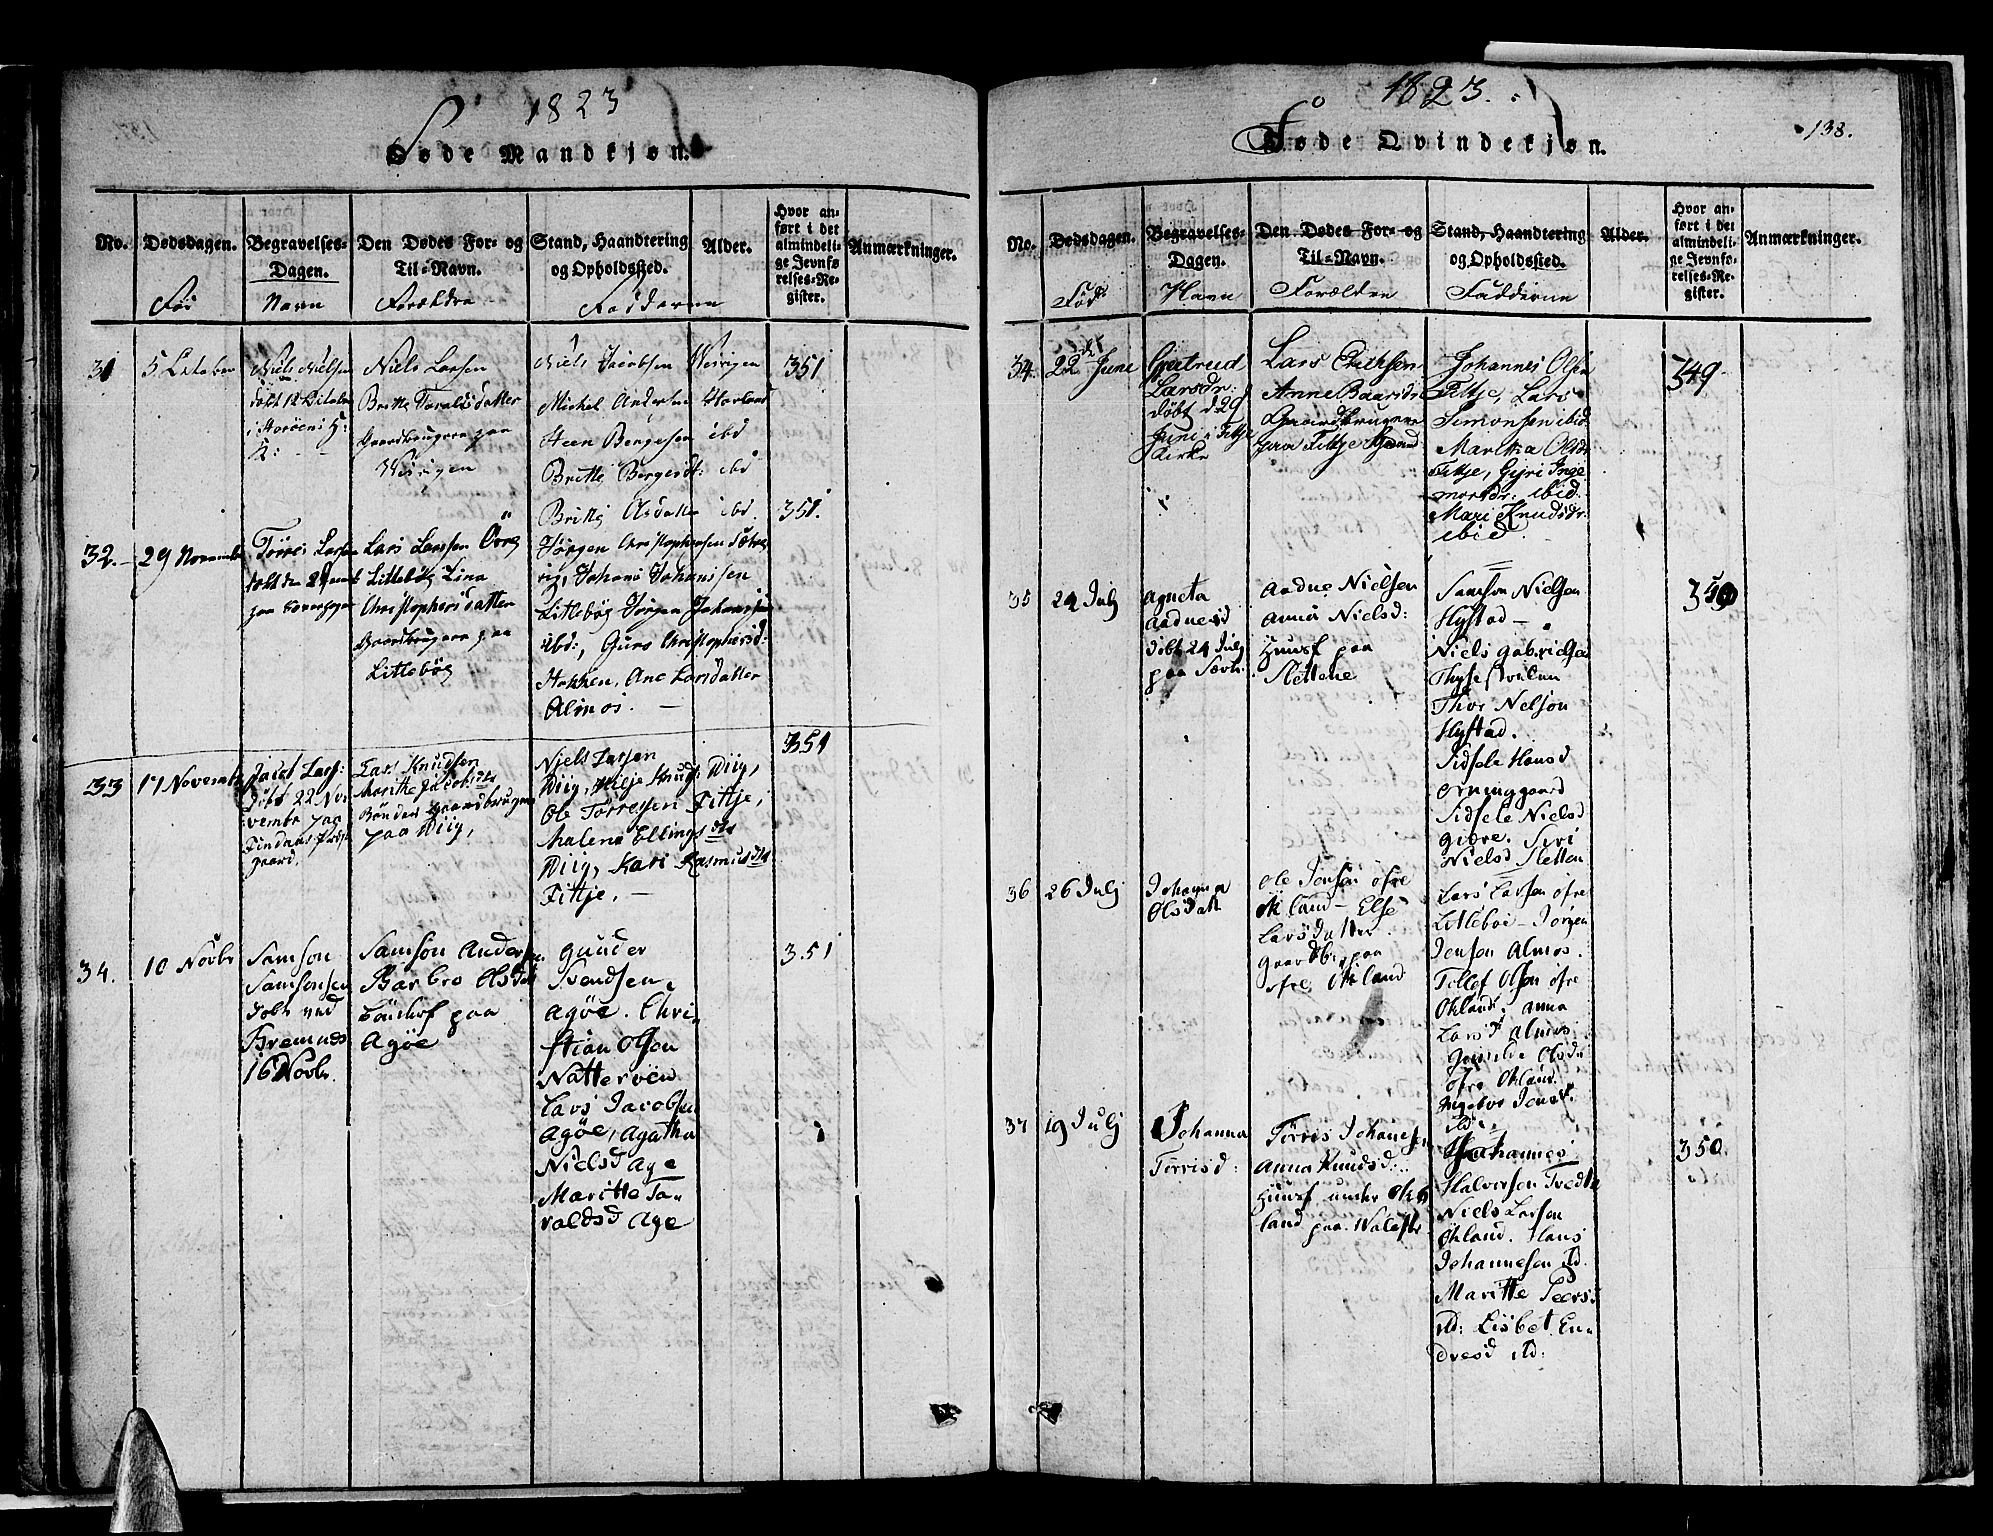 1823
Døde Mandkjøn.
No.
Dødsdagen.
Begravelses-
Dagen.
Den Dødes For- og
Til-Navn.
Stand, Haandtering
og Opholdssted.
Alder.
Hvor an-
ført i det
almindeli-
ge Jevnfø
relses-Re-
gister.
Anmærkninger.
Navn
Forældre
Fadderne
31
5 October
Niels Nielsen
døbt 12 October
Niels Larsen
Britte Taraldsdatter
Gaardbrugere paa
Niels Jacobsen
Michel Andersen
Steen Bergesen ibd
Britte Bergesdt: ibd
Britte Asdatter ibd.
351
32.
29 November
Tørres Larsen
Lars Larsen Övre
Littebøe
Christophersdatter
Gaardbrugere paa
Littebøe
Jørgen Christophersen
Johans Johannsen
Littebøe Jørgen Johannsen
ibd:, Guro Christophersd:
Hokken, Ane Larsdatter
Almos. —
351.
33
17 November
Jacob Lars:
døbt 22 No-
vembr paa
Findaas Præste
gaard.
Lars Knudsen
Marite Jacobsdtr
Bönder Gaardbrugere
paa Wiig,
Niels Larsen
Wiig, Helje Knuds: Wiig,
Ole Torresen Fittje,
Malena Ellingsdtr
Wiig, Kari Rasmusdtr
Fittje, —
351
34.
10 Novbr
Samson
Samsonsen
døbt ved
Bremnes
16 Novbr.
Samson Andersen
Barbro Olsdatt
paa
Agöe
Gunder
Svendsen
Agöe. Chri-
stian Olson
Natterøen
Lars Jacobsen
Agöe, Agatha
Nielsd Age
Maritte Ta-
raldsd Age
351
1823.
138.
Føde Qvindekjøn.
No.
Dødsdagen.
Begravelses-
Dagen.
Den Dødes For- og
Til-Navn.
Stand, Haandtering
og Opholdssted.
Alder.
Hvor an-
ført i det
almindeli-
ge Jevnfø-
relses-Re-
gister.
Anmærkninger.
Født
Navn
Forældre
Fadderne
34.
22de Juni
Giertrud
Larsdr:
døbt d 29
Juni i Fittje
Kirke
Lars Erichsen
Anne Baardsdr
Gaardbrugere
paa Fittje
Johannes Olsen
Fittje, Lars
Simonsen ibid
Martha Olsdr
Fittje, Gyri Inge
morsdr: ibid.
Mari Knudsdr:
ibid.
349
35
24 Julj
Agneta
Aadnesd
døbt 24 Julj
paa
Aadne Nielsen
Anna Nielsd:
Huusf paa
Slettene
Samson Nielsen
Hystad —
Niels Gabrielsen
Thor Nelson
Hystad.
Sidsele Hansd
Orninggaard
Sidsele Nielsd
Gjøre. Siri
Nielsd Sletten
350
36
26 Julj
Johanna
Olsdatt
Ole Jensen øfre
Økland — Else
Larsdatter
Gaardbr. paa
øfre Økland
Lars Larsen øfre
Littebøe — Jørgen
Jensen Almos.
Tollef Olson øfre
Økland. Anna
Larsd Almos
Olsdr
øfre Økland.
37
19 Julj
Johanna
Tørrisd:
Tørris Johansen
Anna Knudsd:
Huusf under Øk-
land paa
Johannes
Halvorsen Tvedte
Niels Larsen
Økland. Hans
Johannesen ibd.
Maritte Peersd
ibd: Lisbet En-
dresd ibd:
350